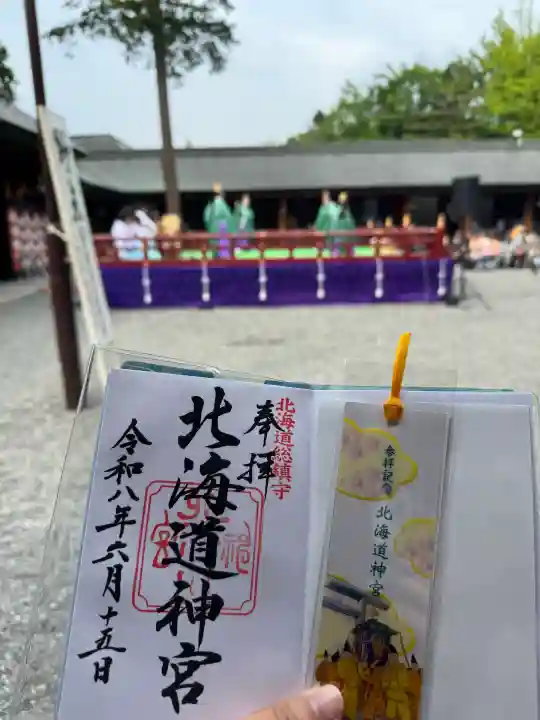 奉拝
北海道総鎮守
北海道神宮
令和八年六月十五日
参拝記念
北海道神宮